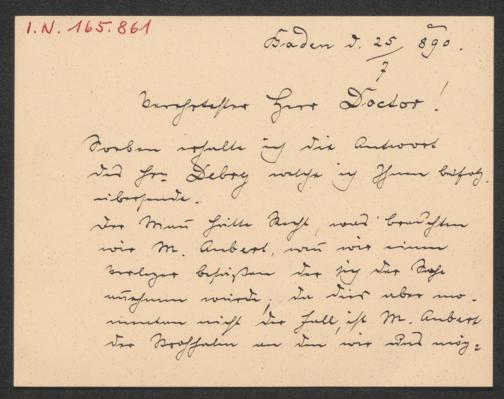 I.N. 165.861
Baden d. 25/7 890.
Verehrtester Herr Doctor!
Soeben erhalte ich die Antwort
des Hrn Debry welche ich Ihnen beifolg.
übersende.
Der Mann hätte Recht, was brauchten
wir M. Aubert, wenn wir einen
Verleger besäßen der sich der Sache
annehmen würde; da dies aber mo-
mentan nicht der Fall, ist M. Aubert
der Strohhalm an den wir uns mög-